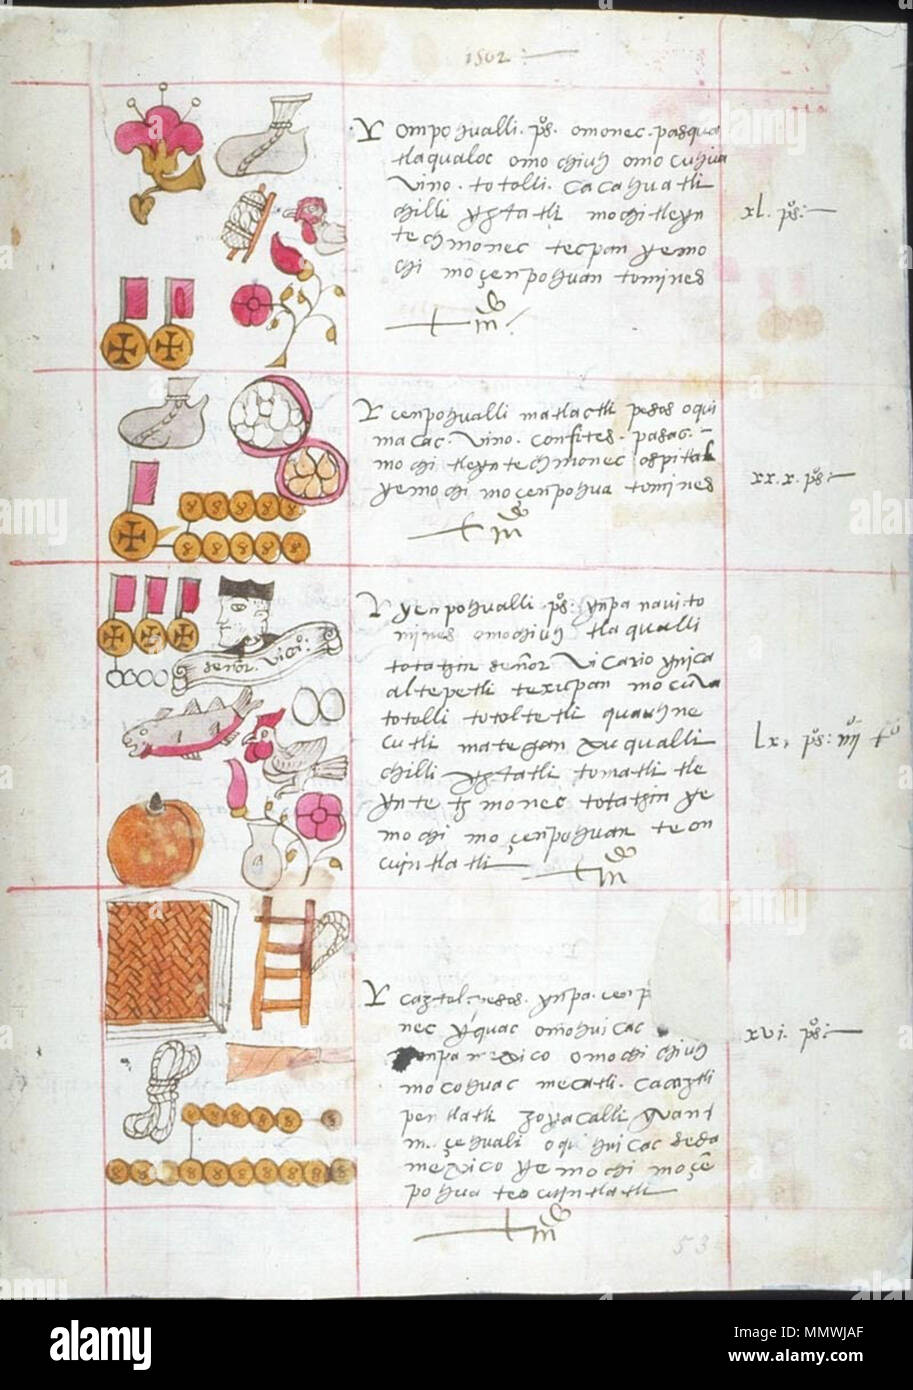 1562
ompohualli. pºs. omonec. pasqua
tlaqualoc omochiuh omocuhua
vino. totolli. cacahuatli
chilli yztatli mochitleyn
techmonec tecpan yemo
chi moçenpohuan tomines
xl. pºs:
cenpohualli matlactli pesos oqui
macac. vino. confites. pasas.
mochi tleyn techmonec ospital
yemochi moçenpohua tomines
xx.x. pºs:
señor. viciº.
yenpohualli pºs: ynpa navi to
mines omochiuh tlaqualli
totatzin señor Vicario ynica
altepetli texupan mocuva
totolli totoltetli quauhne
cutli
chilli yztatli tomatli tle
ynte tzmonec totatzin ye
mochi moçenpohuan teon
cuintlatli
lx. pºs: iiij tº
caztol pesos. ynpa. cenp
nec yquac omohuicac
mexico omochichiuh
mocohuac mecatli. cacaztli
petlatli zoyacalli yvan
oquihuicac
mexico yemochi moçē
pohua teocuintlatli
xvi. pºs:
53
alamy
Image ID: MMWJAF
www.alamy.com